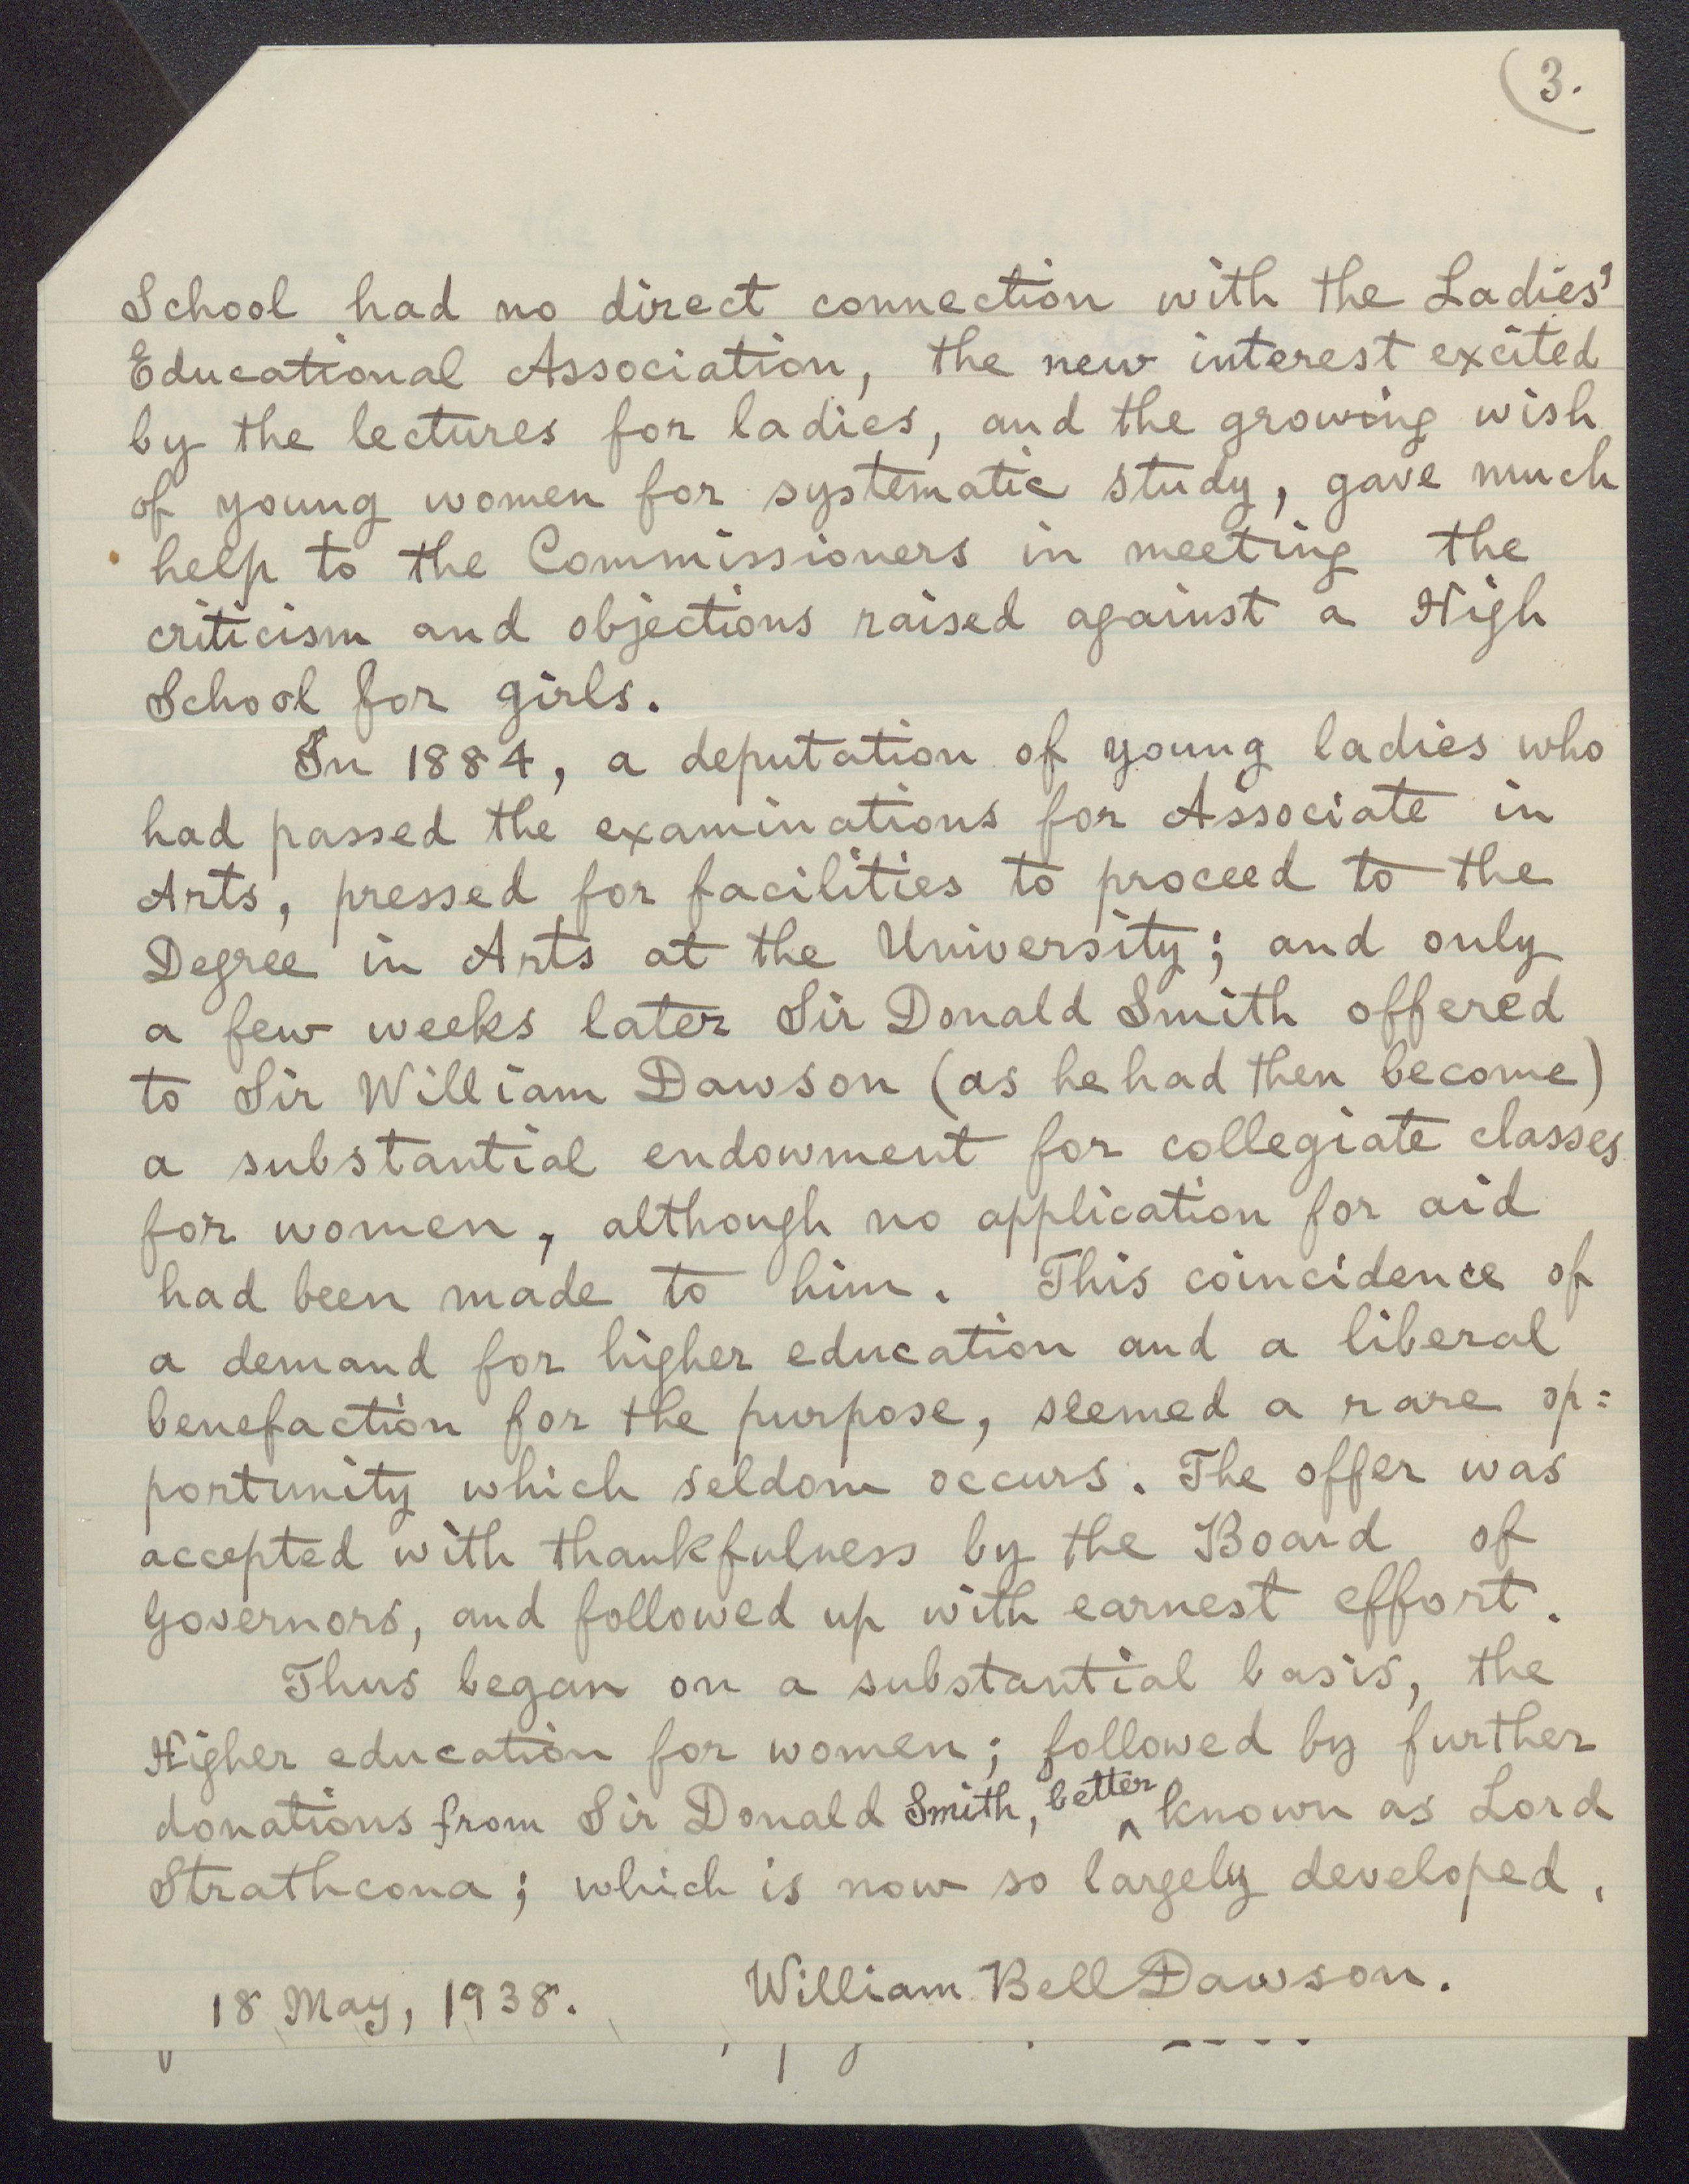 3.
School had no direct connection with the Ladies'
Educational Association, the new interest excited
by the lectures for ladies, and the growing wish
of young women for systematic study, gave much
help to the Commissioners in meeting the
criticism and objections raised against a High
School for girls.
In 1884, a deputation of young ladies who
had passed the examinations for Associate in
Arts, pressed for facilities to proceed to the
Degree in Arts at the University; and only
a few weeks later Sir Donald Smith offered
to Sir William Dawson (as he had then become)
a substantial endowment for collegiate classes
for women, although no application for aid
had been made to him. This coincidence of
a demand for higher education and a liberal
benefaction for the purpose, seemed a rare op=
portunity which seldom occurs. The offer was
accepted with thankfulness by the Board of
Governors, and followed up with earnest effort.
Thus began on a substantial basis, the
Higher education for women; followed by further
donations from Sir Donald Smith, better ^ known as Lord
Strathcona; which is now so largely developed.
18 May, 1938. William Bell Dawson.